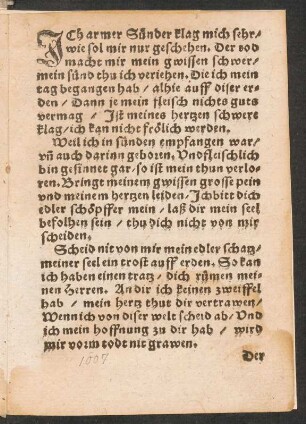 ICh armer Sünder klag mich sehr/
wie sol mir nur geschehen. Der tod
macht mir mein gwissen schwer/
mein sünd thu ich veriehen. Die ich mein
tag begangen hab / alhie auff diser er
den / Dann je mein fleisch nichts guts
vermag / Ist meines hertzen schwert
klag / ich kan nicht frölich werden.
Weil ich in sünden empfangen war/
vñ auch darinn geboren. Vnd fleischlich
bin gesinnet gar / so ist mein thun verlo-
ren. Bringt meinem gwissen grosse pein
vnd meinem hertzen leiden / Ich bitt dich
edler schöpffer mein / laß dir mein seel
befolhen sein / thu dich nicht von mir
scheiden.
Scheid nit von mir mein edler schatz/
meiner seel ein trost auff erden. So kan
ich haben einen tratz / dich rümen mei-
nen Herren. An dir ich keinen zweiffel
hab / mein hertz thut dir vertrawen/
Wenn ich von diser welt scheid ab / Vnd
ich mein hoffnung zu dir hab / wird
mir vorm todt nit grawen.
Der
1007